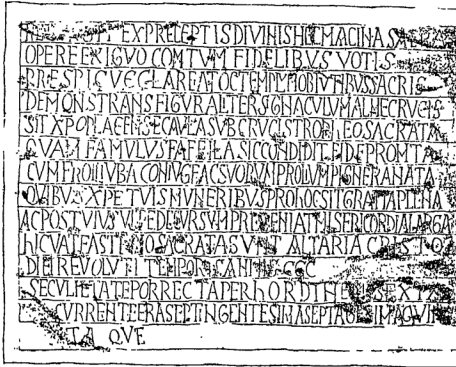 EX PRECEPTIS DIVINIS HEC MACINA SACRA
OPERE EXIGVO COMTVM FIDELIBVS VOTIS
PRESPICVE CLAREAT OC TEMPLVM OBTVTIBVS SACRIS
DEMONSTRANS FIGVRALITER SIGNACVLVM ALME CRVCIS
SIT XPO PLACENS EC AVLA SVB CRVCIS TROPHEO SACRATA
QVAM FAMVLVS FAFEILA SIC CONDIDIT FIDE PROMTA
CVM FROILIVBA CONIVGE AC SVORVM PROLIVM PIGNERA NATA
QVIBVS XPE TVIS MVNERIBVS PRO HOC SIT GRATIA PLENA
AC POST VIVS VITE DECVRSVM PREVENIAT MISERICORDIA LARGA
HIC VATE ASTERIO SACRATA SVNT ALTARIA CRISTO
DIEI REVOLVTI TEMPORIS ANNI CCC
SECVLI ETATE PORRECTA PER HORDINEM SEXTA
CVRRENTE ERA SEPTINGENTESIMA SEPTAGESIMA QVIN
TA QVE